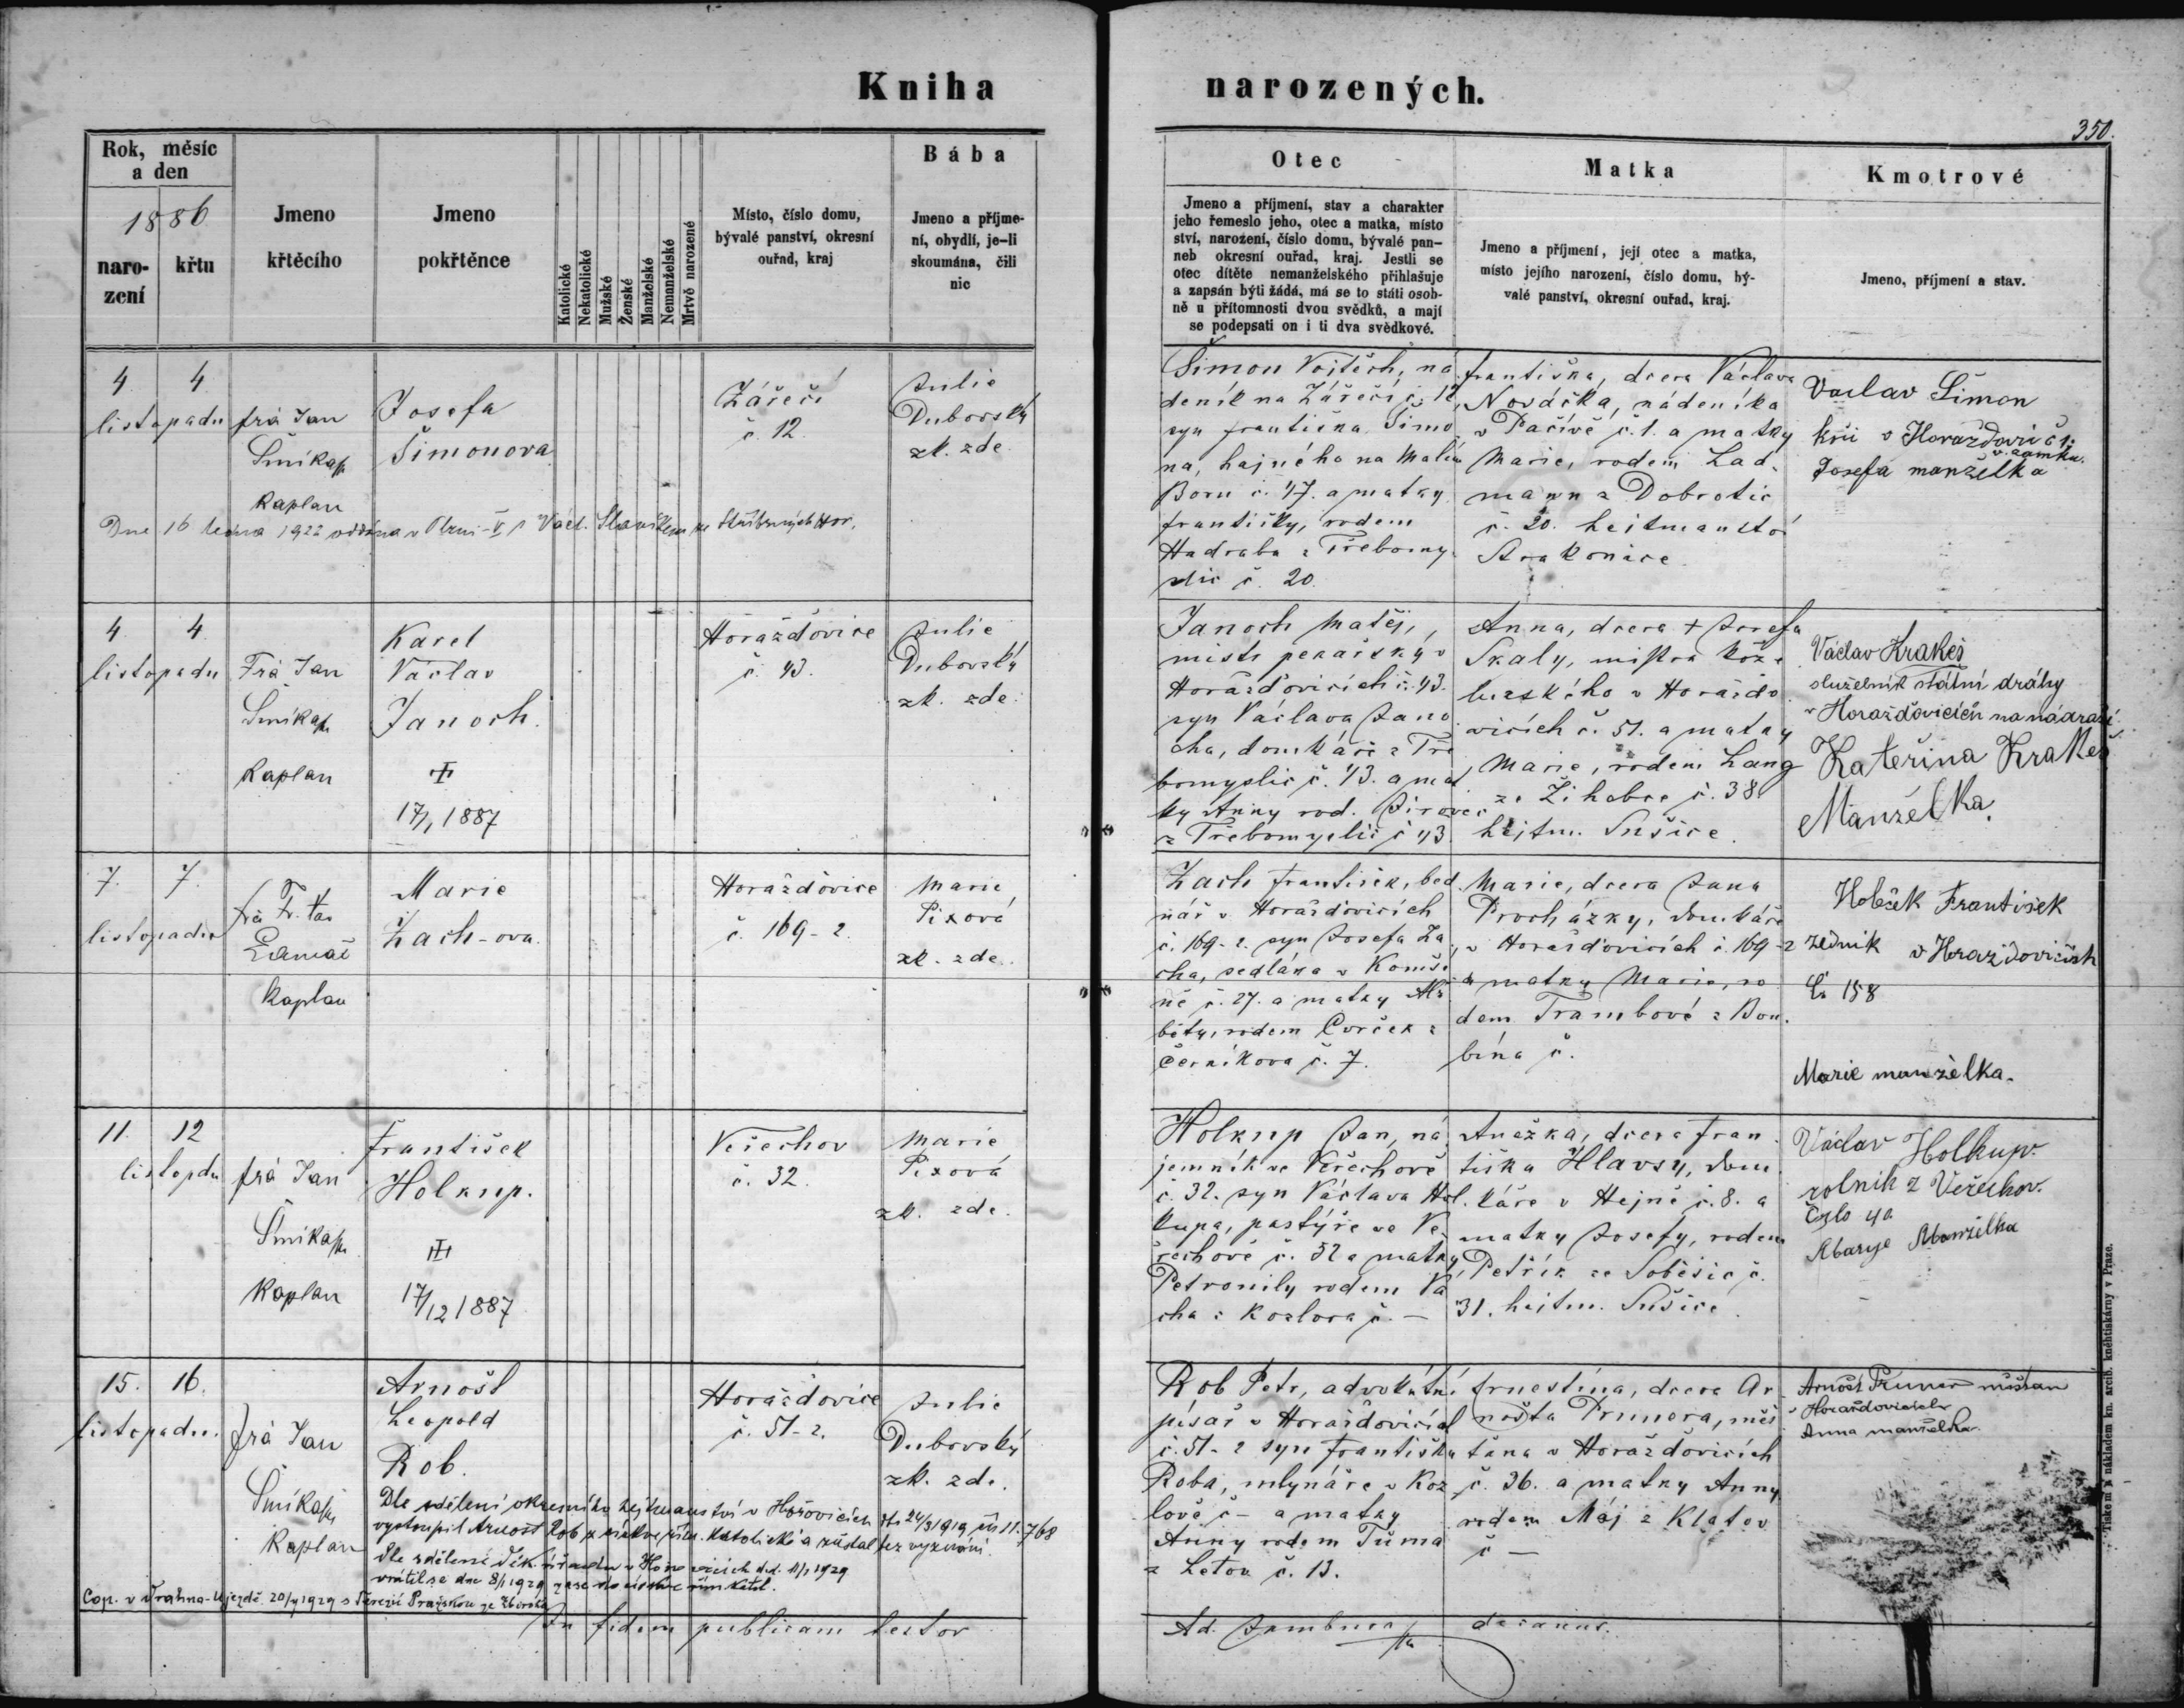 Kniha
narozených.
350.
Rok, měsíc
a den
1886
naro-
zení
křtu
Jmeno
křtěcího
Jmeno
pokřtěnce
Katolické
Nekatolické
Mužské
Ženské
Manželské
Nemanželské
Mrtvě narozené
Místo, číslo domu,
bývalé panství, okresní
ouřad, kraj
Bába
Jmeno a příjme-
ní, obydlí, je-li
skoumána, čili
nic
Otec
Jmeno a příjmení, stav a charakter
jeho řemeslo jeho, otec a matka, místo
ství, narození, číslo domu, bývalé pan-
neb okresní ouřad, kraj. Jestli se
otec dítěte nemanželského přihlašuje
a zapsán býti žádá, má se to státi osob-
ně u přítomnosti dvou svědků, a mají
se podepsati on i ti dva svědkové.
Matka
Jmeno a příjmení, její otec a matka,
místo jejího narození, číslo domu, bý-
valé panství, okresní ouřad, kraj.
Kmotrové
Jmeno, příjmení a stav.
4 4
listopadu
frà Jan
kaplan
Josefa
Šimonova
Zářečí
č. 12.
Julie
Dubovský
zk. zde
Dne 16 ledna 1922 oddána v Plzni
Šimon Vojtěch, ná
deník na Zářečí č. 12,
syn Františka Šimo
na, hajného na Malém
Boru č. 47. a matky
Františky, rodem
Hadraba z Třebomy
slic č. 20.
Františka, dcera Václava
Nováčka, nádeníka
v Pačívě č. 1. a matky
Marie, rodem Lad-
mann z Dobrotic
č. 20. hejtmanství
Strakonice.
Vaclav Šimon
v Horaždovi č 1.
v zamku.
Josefa manželka
4 4
listopadu
Frà Jan
kaplan
Karel
Václav
Janoch.
17/1 1887
Horažďovice
č. 43.
Julie
Dubovský
zk. zde.
Janoch Matěj,
mistr pekařský v
Horažďovicích č. 43.
syn Václava Jano
cha, domkáře z Tře
bomyslic č. 43. a mat
ky Anny rod. Jirovec
z Třebomyslic č 43
Anna, dcera + Josefa
Skaly, mistra kože
lužského v Horažďo
vicích č. 51. a matky
Marie, rodem Lang
ze Žihobce č. 38.
hejtm. Sušice.
Václav Krakeš
služebník státní dráhy
v Horažďovicích na nádraží
Kateřina Krakeš
Manželka.
7. 7.
listopadu
kaplan
Marie
Zach-ova.
Horažďovice
č. 169-2.
Marie
Pixová
zk. zde.
Zach František, bed
nář v Horažďovicích
č. 169-2. syn Josefa Za
cha, sedláka v Komši
ně č. 27. a matky Al
běty, rodem Cvrček z
Černíkova č. 7.
Marie, dcera Jana
Procházky, domkáře
v Horažďovicích č. 169-2
a matky Marie, ro
dem Trambové z Bou-
bína č.
František
zednik v Horaždovicích
Č. 158
Marie manželka.
11. 12
listopdu
frà Jan
kaplan
František
Holkup.
17/12 1887
Veřechov
č. 32.
Marie
Pixová
zk. zde.
Holkup Jan, ná
jemník ve Veřechově
č. 32. syn Václava Hol
kupa, pastýře ve Ve
řechově č. 32 a matky
Petronily rodem Va
cha z Kozlova č. —
Anežka, dcera Fran
tiška Hlavsy, dom
káře v Hejné č. 8. a
matky Josefy, rodem
Petřík ze Soběšic č.
31. hejtm. Sušice.
Václav Holkup.
rolnik z Veřechov.
Čzlo 40
Marye Manželka
15. 16.
listopadu.
frà Jan
kaplan
Arnošt
Leopold
Rob.
Horažďovice
č. 51-2.
Julie
Dubovský
zk. zde.
Dle sdělení okresního hejtmanství v Hořovicích 24/3 1919 čís 11.768
vystoupil Arnošt Rob z církve řím. katolické a zůstal bez vyznání.
Dle sdělení děk. úřadu v Hořovicích
vrátil se dne 8/1 1929 zase do církve řím katol.
Cop. v Drahno-Ujezdě 20/4 1929 s Terezií Pražskou ze Zbiroha
Rob Petr, advokátní
písař v Horažďovicích
č. 51-2 syn Františka
Roba, mlynáře v Koz
lově č — a matky
Anny rodem Tůma
z Letov č. 13.
Ernestina, dcera Ar
nošta Prunera, měš
ťana v Horažďovicích
č. 36. a matky Anny
rodem Máj z Klatov
č —
Arnošt Pruner měšťan
v Horažďovicích
Anna manželka.
In fidem publicam testor
Ad. decanus.
Tiskem a nákladem kn. arcib. kněhtiskárny v Praze.